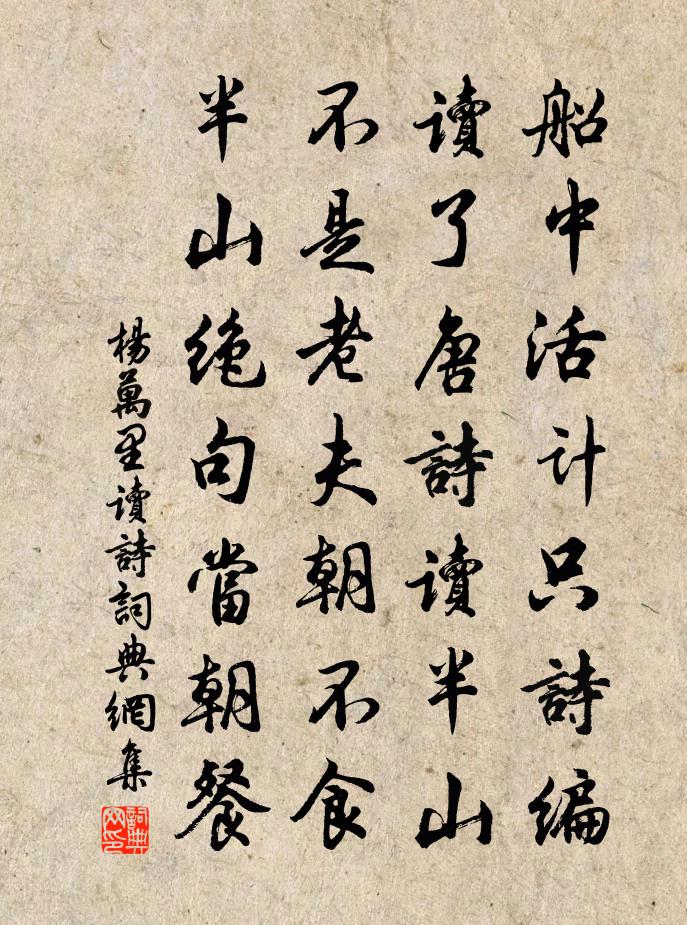 船中活计只詩編
讀了唐詩讀半山
不是老夫朝不食
半山绝句當朝餐
楊萬里讀詩詞典網集
詞典網印